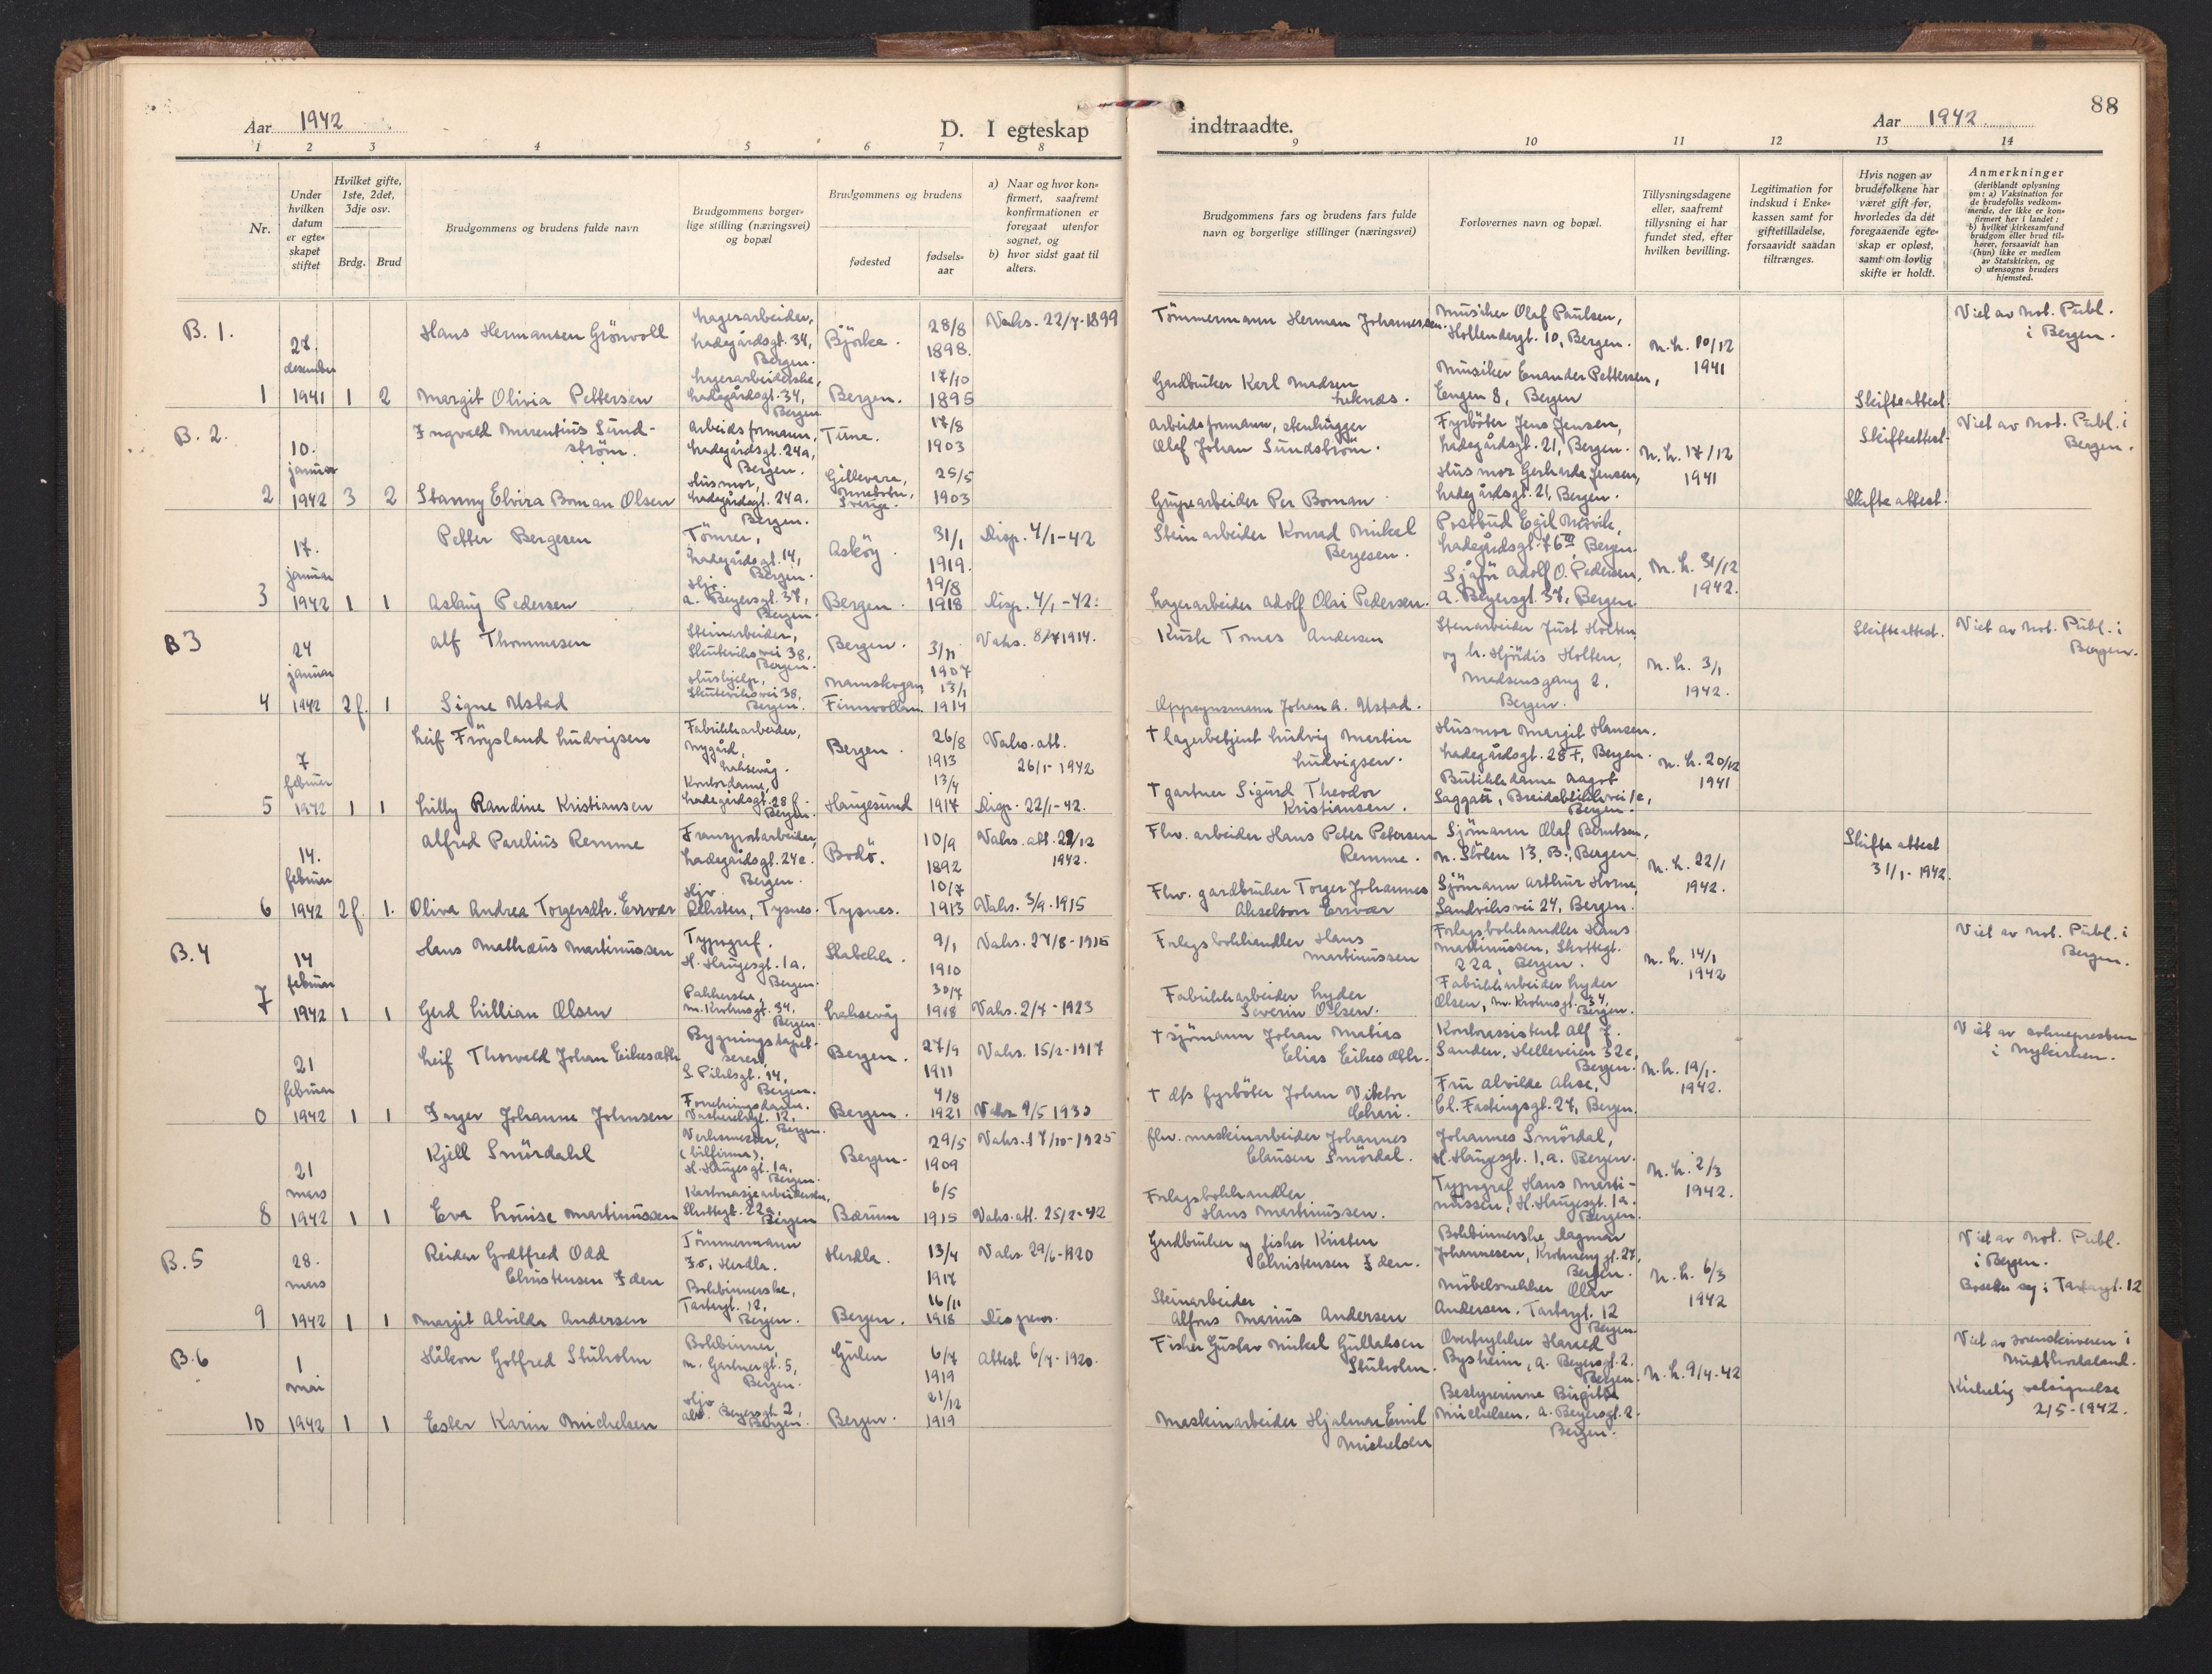 88
Aar 1942
D. I egteskap
indtraadte.
Aar 1942
1 2 3 4 5 6 7 8
9 10 11 12 13 14
Nr.
Under hvilken datum er egteskapet stiftet
Hvilket gifte, 1ste, 2det, 3dje osv.
Brdg. Brud
Brudgommens og brudens fulde navn
Brudgommens borgerlige stilling (næringsvei) og bopæl
Brudgommens og brudens
fødested
fødselsaar
a) Naar og hvor konfirmert, saafremt konfirmationen er foregaat utenfor sognet, og
b) hvor sidst gaat til alters.
Brudgommens fars og brudens fars fulde navn og borgerlige stillinger (næringsvei)
Forlovernes navn og bopæl.
Tillysningsdagene eller, saafremt tillysning ei har fundet sted, efter hvilken bevilling.
Legitimation for indskud i Enkekassen samt for giftetilladelse, forsaavidt saadan tiltrænges.
Hvis nogen av brudefolkene har været gift før, hvorledes da det foregaaende egteskap er opløst, samt om lovlig skifte er holdt.
Anmerkninger
(deriblandt oplysning om: a) Vaksination for de brudefolks vedkommende, der ikke er konfirmert her i landet; b) hvilket kirkesamfund brudgom eller brud tilhører, forsaavidt han (hun) ikke er medlem av Statskirken, og c) utensogns bruders hjemsted.
B. 1.
27. desember 1941
Hans Hermansen Grönvoll
Lagerarbeider, Ladegårdsgt. 34, Bergen.
Björke.
28/8 1898.
Vaks. 22/7-1899
Tömmermann Herman Johannessen.
Musiker Olaf Paulsen, Hollendergt. 10, Bergen.
N.L. 10/12 1941
Viet av Not. Publ. i Bergen.
1 1 2
Margit Olivia Pettersen
Lagerarbeiderske, Ladegårdsgt. 34, Bergen
Bergen.
17/10 1895
Gardbruker Karl Madsen Leknes.
Musiker Enander Pettersen, Engen 8, Bergen
Skifteattest.
B. 2.
10. januar 1942
Ingvald Marentius Sundström.
Arbeidsformann, Ladegårdsgt. 24a, Bergen.
Tune.
17/8 1903
Arbeidsformann, stenhugger Olof Johan Sundström.
Fyrböter Jens Jensen, Ladegårdsgt. 21, Bergen.
N.L. 17/12 1941
Skifteattest.
Viet av Not. Publ. i Bergen.
2 3 2
Stanny Elvira Boman Olsen
Husmor, Ladegårdsgt. 24a. Bergen.
Sverige.
25/5 1903
Gruvearbeider Per Boman.
Husmor Gerharda Jensen, Ladegårdsgt. 21, Bergen.
Skifteattest.
17. januar 1942
Petter Bergesen
Tömrer, Ladegårdsgt. 14, Bergen.
Asköy.
31/1 1919.
Disp. 4/1-42
Steinarbeider Konrad Mikal Bergesen.
Postbud Egil
Ladegårdsgt. 76, Bergen.
N.L. 31/12 1942.
3 1 1
Aslaug Pedersen
Hjv. A. Beyersgt. 37, Bergen.
Bergen.
19/8 1918
Disp. 4/1-42.
Lagerarbeider Adolf Olai Pedersen.
Sjåför Adolf O. Pedersen, A. Beyersgt. 37, Bergen
B 3
24 januar 1942
Alf Thommesen
Steinarbeider, Skuteviksvei 38, Bergen.
Bergen.
3/11 1907
Vaks. 8/7 1914.
Kusk Tomas Andersen
Stenarbeider Just Holten og h. Hjördis Holten, Madsensgang 2, Bergen.
N.L. 3/1 1942.
Skifteattest.
Viet av Not. Publ. i Bergen.
4 2f. 1
Signe Ustad
Hushjelp, Skuteviksvei 38, Bergen.
Namskogan,
13/1 1914
Oppsynsmann Johan A. Ustad.
7 februar 1942
Leif Fröysland Ludvigsen
Fabrikkarbeider, Nygård, Laksevåg.
Bergen.
26/8 1913
Vaks. att. 26/1-1942
† Lagerbetjent Ludvig Martin Ludvigsen.
Husmor Margit Hansen. Ladegårdsgt. 28 F, Bergen.
N.L. 20/12 1941
5 1 1
Lilly Randine Kristiansen
Kontordame, Ladegårdsgt. 28 f. Bergen.
Haugesund
13/4 1917
Disp. 22/1-42.
† gartner Sigurd Theodor Kristiansen.
Butikkdame Aagot Saggau, Breidablikkvei 1c, Bergen.
14. februar 1942
Alfred Parelius Remme
Transportarbeider, Ladegårdsgt. 24c. Bergen.
Bodö.
10/9 1892
Vaks. att. 22/12 1942.
Fhv. arbeider Hans Peter Petersen Remme.
Sjömann Olaf Berntsen, N. Stölen 13, B., Bergen
N.L. 22/1 1942.
Skifteattest 31/1-1942.
6 2f. 1.
Oliva Andrea Torgersdtr. Ervær
Hjv. Reksten, Tysnes.
Tysnes.
10/7 1913
Vaks. 3/9-1915
Fhv. gardbruker Torger Johannes Akselson Ervær
Sjömann Arthur Horne, Sandviksvei 24, Bergen.
B. 4
14 februar 1942
Hans Mathæus Martinussen
Typograf. H. Haugesgt. 1a. Bergen.
Stabekk.
9/1 1910
Vaks. 27/8-1915
Forlagsbokhandler Hans Martinussen
Forlagsbokhandler Hans Martinussen, Skottegt. 22a, Bergen.
N.L. 14/1 1942
Viet av Not. Publ. i Bergen.
7 1 1
Gerd Lillian Olsen
Pakkerske, M. Krohnsgt. 34, Bergen.
Laksevåg
30/4 1918
Vaks. 2/4-1923
Fabrikkarbeider Lyder Severin Olsen.
Fabrikkarbeider Lyder Olsen, M. Krohnsgt. 34, Bergen.
21 februar 1942
Leif Thorvald Johan Eikesæth
S. Pihlsgt. 14, Bergen.
Bergen.
27/9 1911
Vaks. 15/2-1917
† sjömann Johan Matias Elias Eikesæth.
Kontorassistent Alf J. Sanden, Helleveien 32c, Bergen.
N.L. 19/1-1942.
Viet av sognepresten i Nykirken.
0 1 1
Inger Johanne Johnsen
Forretningsdame. 12, Bergen.
Bergen.
4/8 1921
Vaks 9/5 1930
† dfs fyrböter Johan Viktor
Fru Alvilde Akse, Cl. Fastingsgt. 27, Bergen.
21 mars 1942
Kjell Smördahl
Verksmester, (bilfirma). H. Haugesgt. 1a. Bergen.
Bergen.
29/5 1909
Vaks. 17/10-1925
fhv. maskinarbeider Johannes Clausen Smördal.
Johannes Smördal, H. Haugesgt. 1, a. Bergen.
N.L. 2/3 1942.
8 1 1
Eva Louise Martinussen
Kartonasjearbeiderske, Skottegt. 22a, Bergen
Bærum
6/5 1915
Vaks. att. 25/2-42
Forlagsbokhandler Hans Martinussen.
Typograf Hans Martinussen, H. Haugesgt. 1a. Bergen.
B. 5
28. mars 1942
Reidar Godtfred Odd Christensen Iden
Tömmermann Io, Herdla.
Herdla.
13/4 1917
Vaks 29/6-1920
Gardbruker og fisker Kristen Christensen Iden.
Bokbinnerske Dagmar Johannesen, Krohneng gt. 27, Bergen.
N.L. 6/3 1942
Viet av Not. Publ. i Bergen.
Bosetter seg i Tartargt. 12
9 1 1
Margit Alvilda Andersen
Bokbinnerske, Tartargt. 12, Bergen.
Bergen.
16/11 1918
Dispens.
Steinarbeider Alfons Marius Andersen
Möbelsnekker Olav Andersen. Tartargt. 12 Bergen
B. 6
1 mai 1942
Håkon Gotfred Stuholm
Bokbinner, N. Gartnergt. 5, Bergen.
Gulen
6/7 1919
Attest 6/7-1920.
Fisker Gustav Mikal Gullaksen Stuholm.
Overtrykker Harald Bysheim, A. Beyersgt. 2. Bergen.
N.L. 9/4-42
Viet av sorenskriveren i Midthordaland.
Kirkelig velsignelse 2/5-1942.
10 1 1
Ester Karin Michelsen
Hjv. Beyersgt. 2, Bergen.
Bergen.
21/12 1919
Maskinarbeider Hjalmar Emil Michelsen
Bestyrerinne Birgitte Michelsen. A. Beyersgt. 2. Bergen.